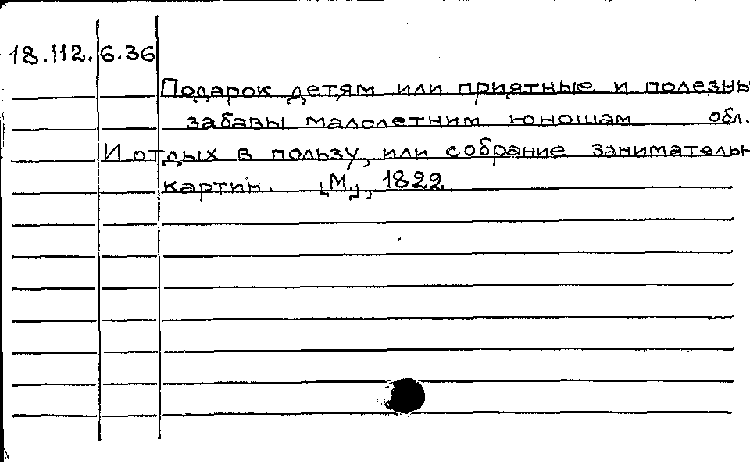 18.112.6.36
Подарок детям или приятные и полезны
забавы малолетним юношам обл.
И отдых в пользу, или собрание заниматель
картин. [М.], 1822